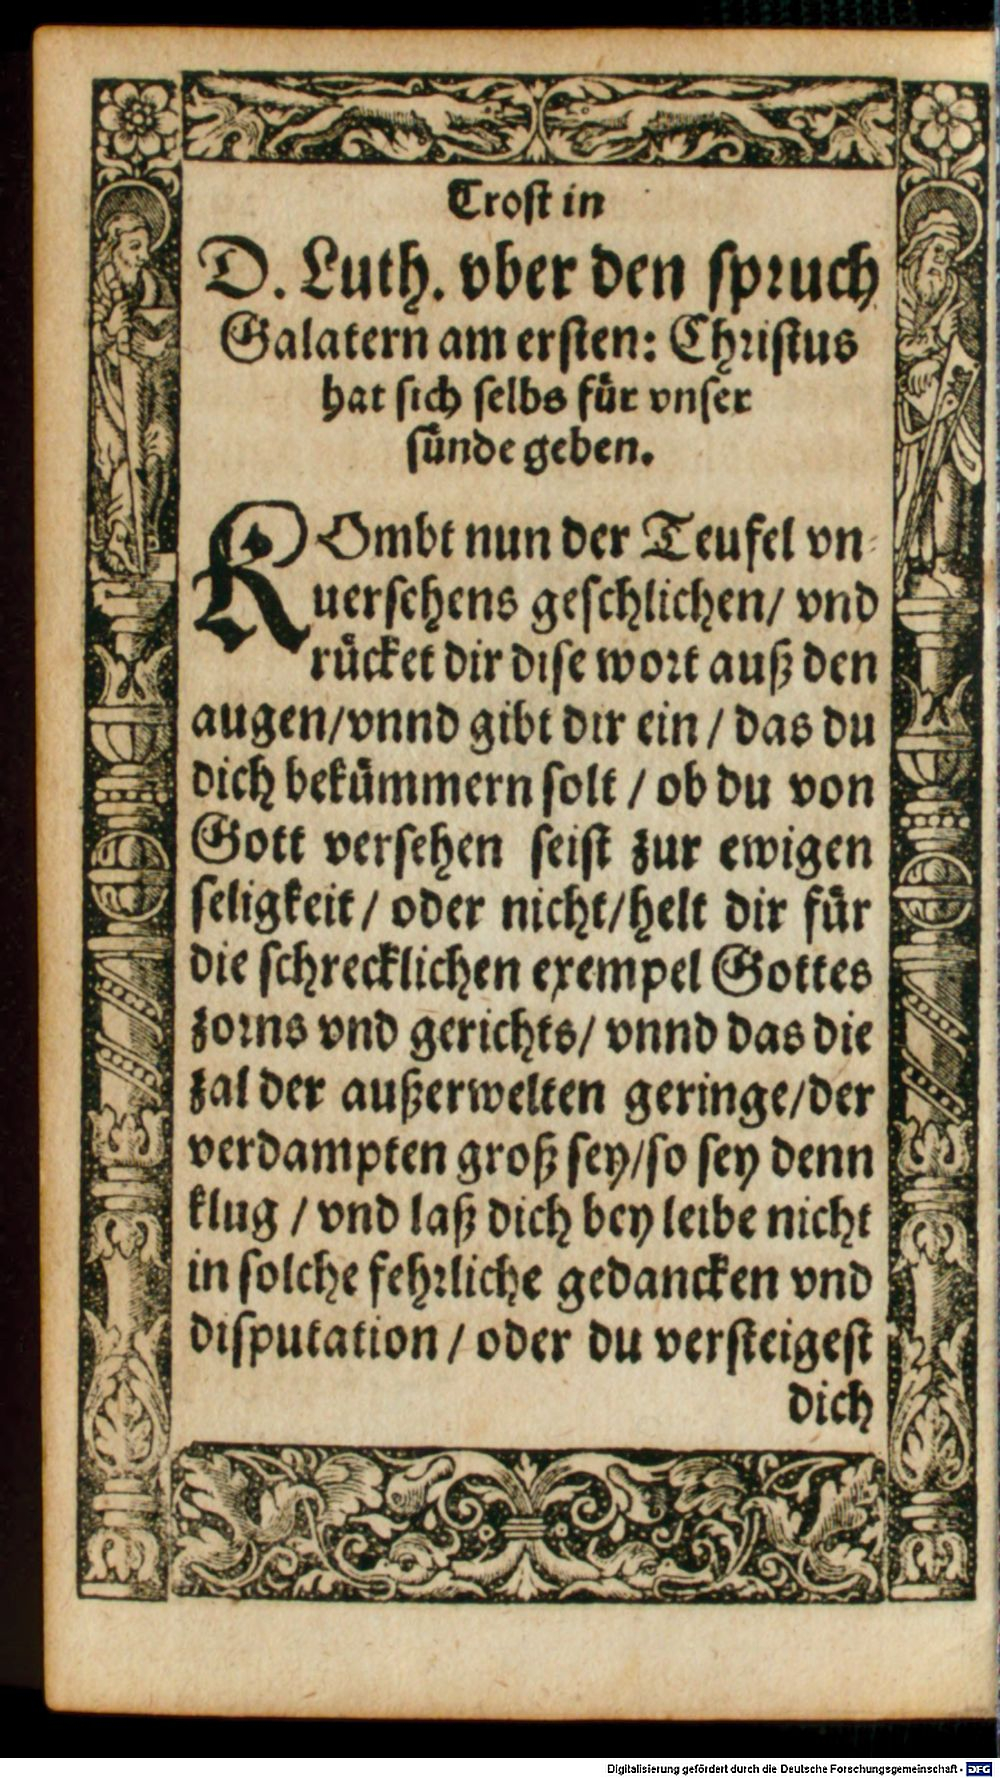 Trost in
D. Luth. vber den spruch
Galatern am ersten: Christus
hat sich selbs für vnser
sünde geben.
KOmbt nun der Teufel vn-
uersehens geschlichen/ vnd
rücket dir dise wort auß den
augen/vnnd gibt dir ein / das du
dich bekümmern solt / ob du von
Gott versehen seist zur ewigen
seligkeit / oder nicht/helt dir für
die schrecklichen exempel Gottes
zorns vnd gerichts/ vnnd das die
zal der außerwelten geringe/der
verdampten groß sey/so sey denn
klug / vnd laß dich bey leibe nicht
in solche fehrliche gedancken vnd
disputation / oder du versteigest
dich
Digitalisierung gefördert durch die Deutsche Forschungsgemeinschaft - DFG